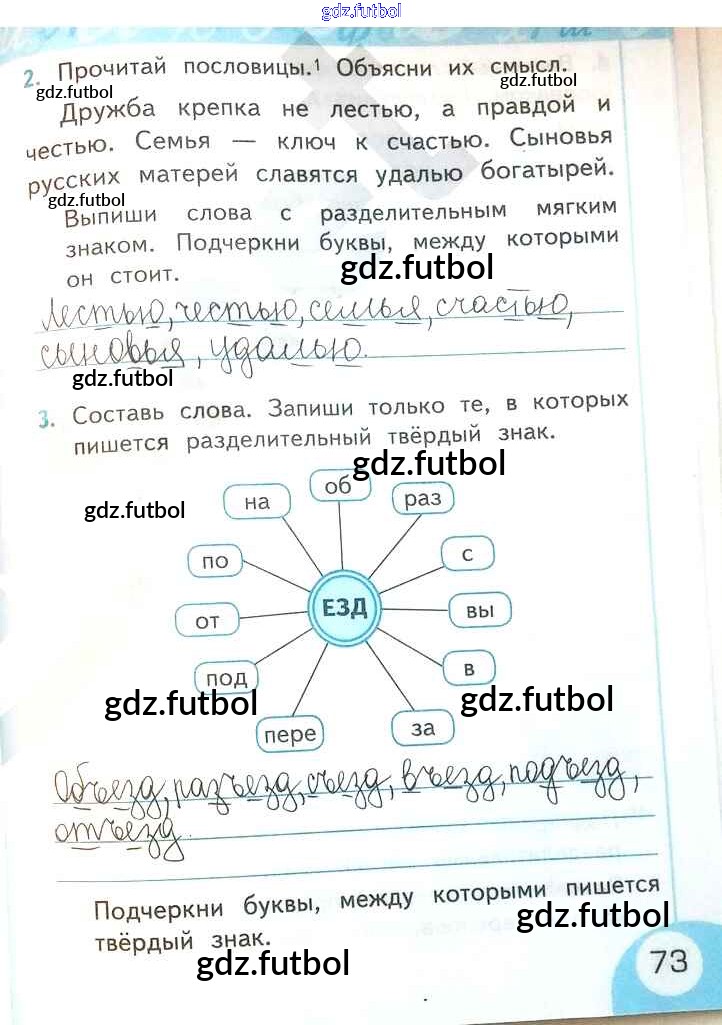 gdz.futbol
2. Прочитай пословицы.¹ Объясни их смысл.
gdz.futbol
gdz.futbol
Дружба крепка не лестью, а правдой и
честью. Семья — ключ к счастью. Сыновья
русских матерей славятся удалью богатырей.
gdz.futbol
Выпиши слова с разделительным мягким
знаком. Подчеркни буквы, между которыми
он стоит.
gdz.futbol
Лестью, честью, семья, счастью,
сыновья, удалью.
gdz.futbol
3. Составь слова. Запиши только те, в которых
пишется разделительный твёрдый знак.
gdz.futbol
gdz.futbol
на
об
раз
по
с
ЕЗД
от
вы
под
в
gdz.futbol
gdz.futbol
пере
за
Объезд, разъезд, съезд, въезд, подъезд,
отъезд.
Подчеркни буквы, между которыми пишется
твёрдый знак.
gdz.futbol
gdz.futbol
73